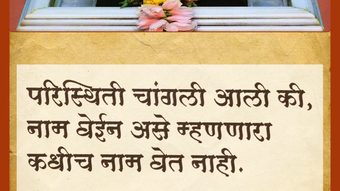 परिस्थिती चांगली आली की,
नाम घेईन असे म्हणणारा
कधीच नाम घेत नाही.